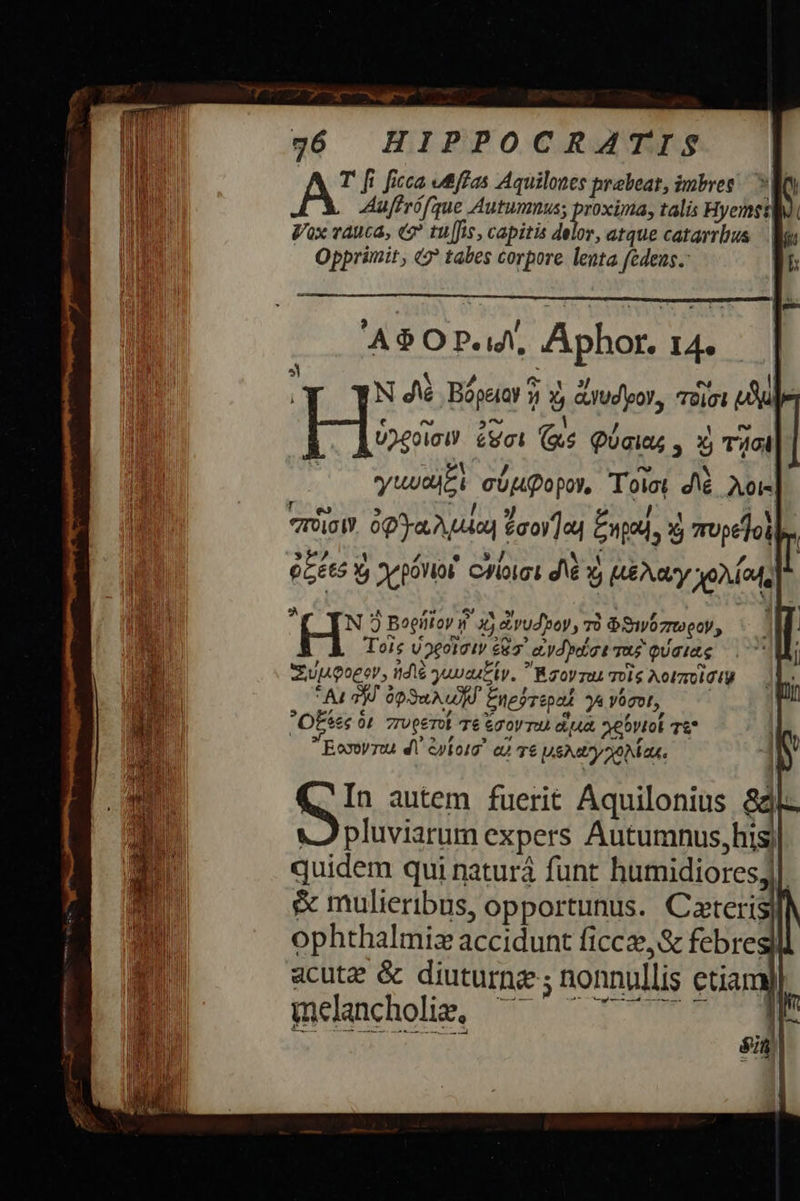 96 HIPPOCRATIS
AT ſi ſicca æſtas Aquilones præbeat, imbres
Auſtróſque Autumnus; proxima, talis Hyems
Vox rauca, & tuſſis, capitis dolor, atque catarrhus
Opprimit, & tabes corpore lenta ſedens.
ἈΦΟΡ. ιδʹ. Aphor. 14.
ἪΝ δὲ Βόρειον ᾖ ϗ ἄνυδρον, τοῖσι μὲν
ὑγροῖσιν ἐοῦσι τὰς φύσιας, ϗ τῇσι
γυναιξὶ σύμφορον. Τοῖσι δὲ λοι-
ποῖσιν ὀφθαλμίαι ἔσονται ξηραὶ, ϗ πυρετοὶ
ὀξέες ϗ χρόνιοι ἐνίοισι δὲ ϗ μελαγχολίαι,
ἪΝ δ Βορήϊον ᾖ ϗ ἄνυδρον, τὸ φθινόπωρον,
Τοῖς ὑγροῖσιν ἐοῦσ' ἀνδράσι τὰς φύσιας
Σύμφορον, ἠδὲ γυναιξίν. Ἔσονται τοῖς λοιποῖσιν
Αἱ τῶν ὀφθαλμῶν ξηρότεραί γε νόσοι,
Ὀξέες δὲ πυρετοί τε ἔσονται ἅμα χρόνιοί τε·
Ἔσσονται δ' ἐνίοις' αἵ τε μελαγχολίαι.
SIn autem fuerit Aquilonius &
pluviarum expers Autumnus, his
quidem qui naturâ ſunt humidiores,
& mulieribus, opportunus. Cæteris
ophthalmiæ accidunt ſiccæ, & febres
acutæ & diuturnæ; nonnullis etiam
melancholiæ.
Sin